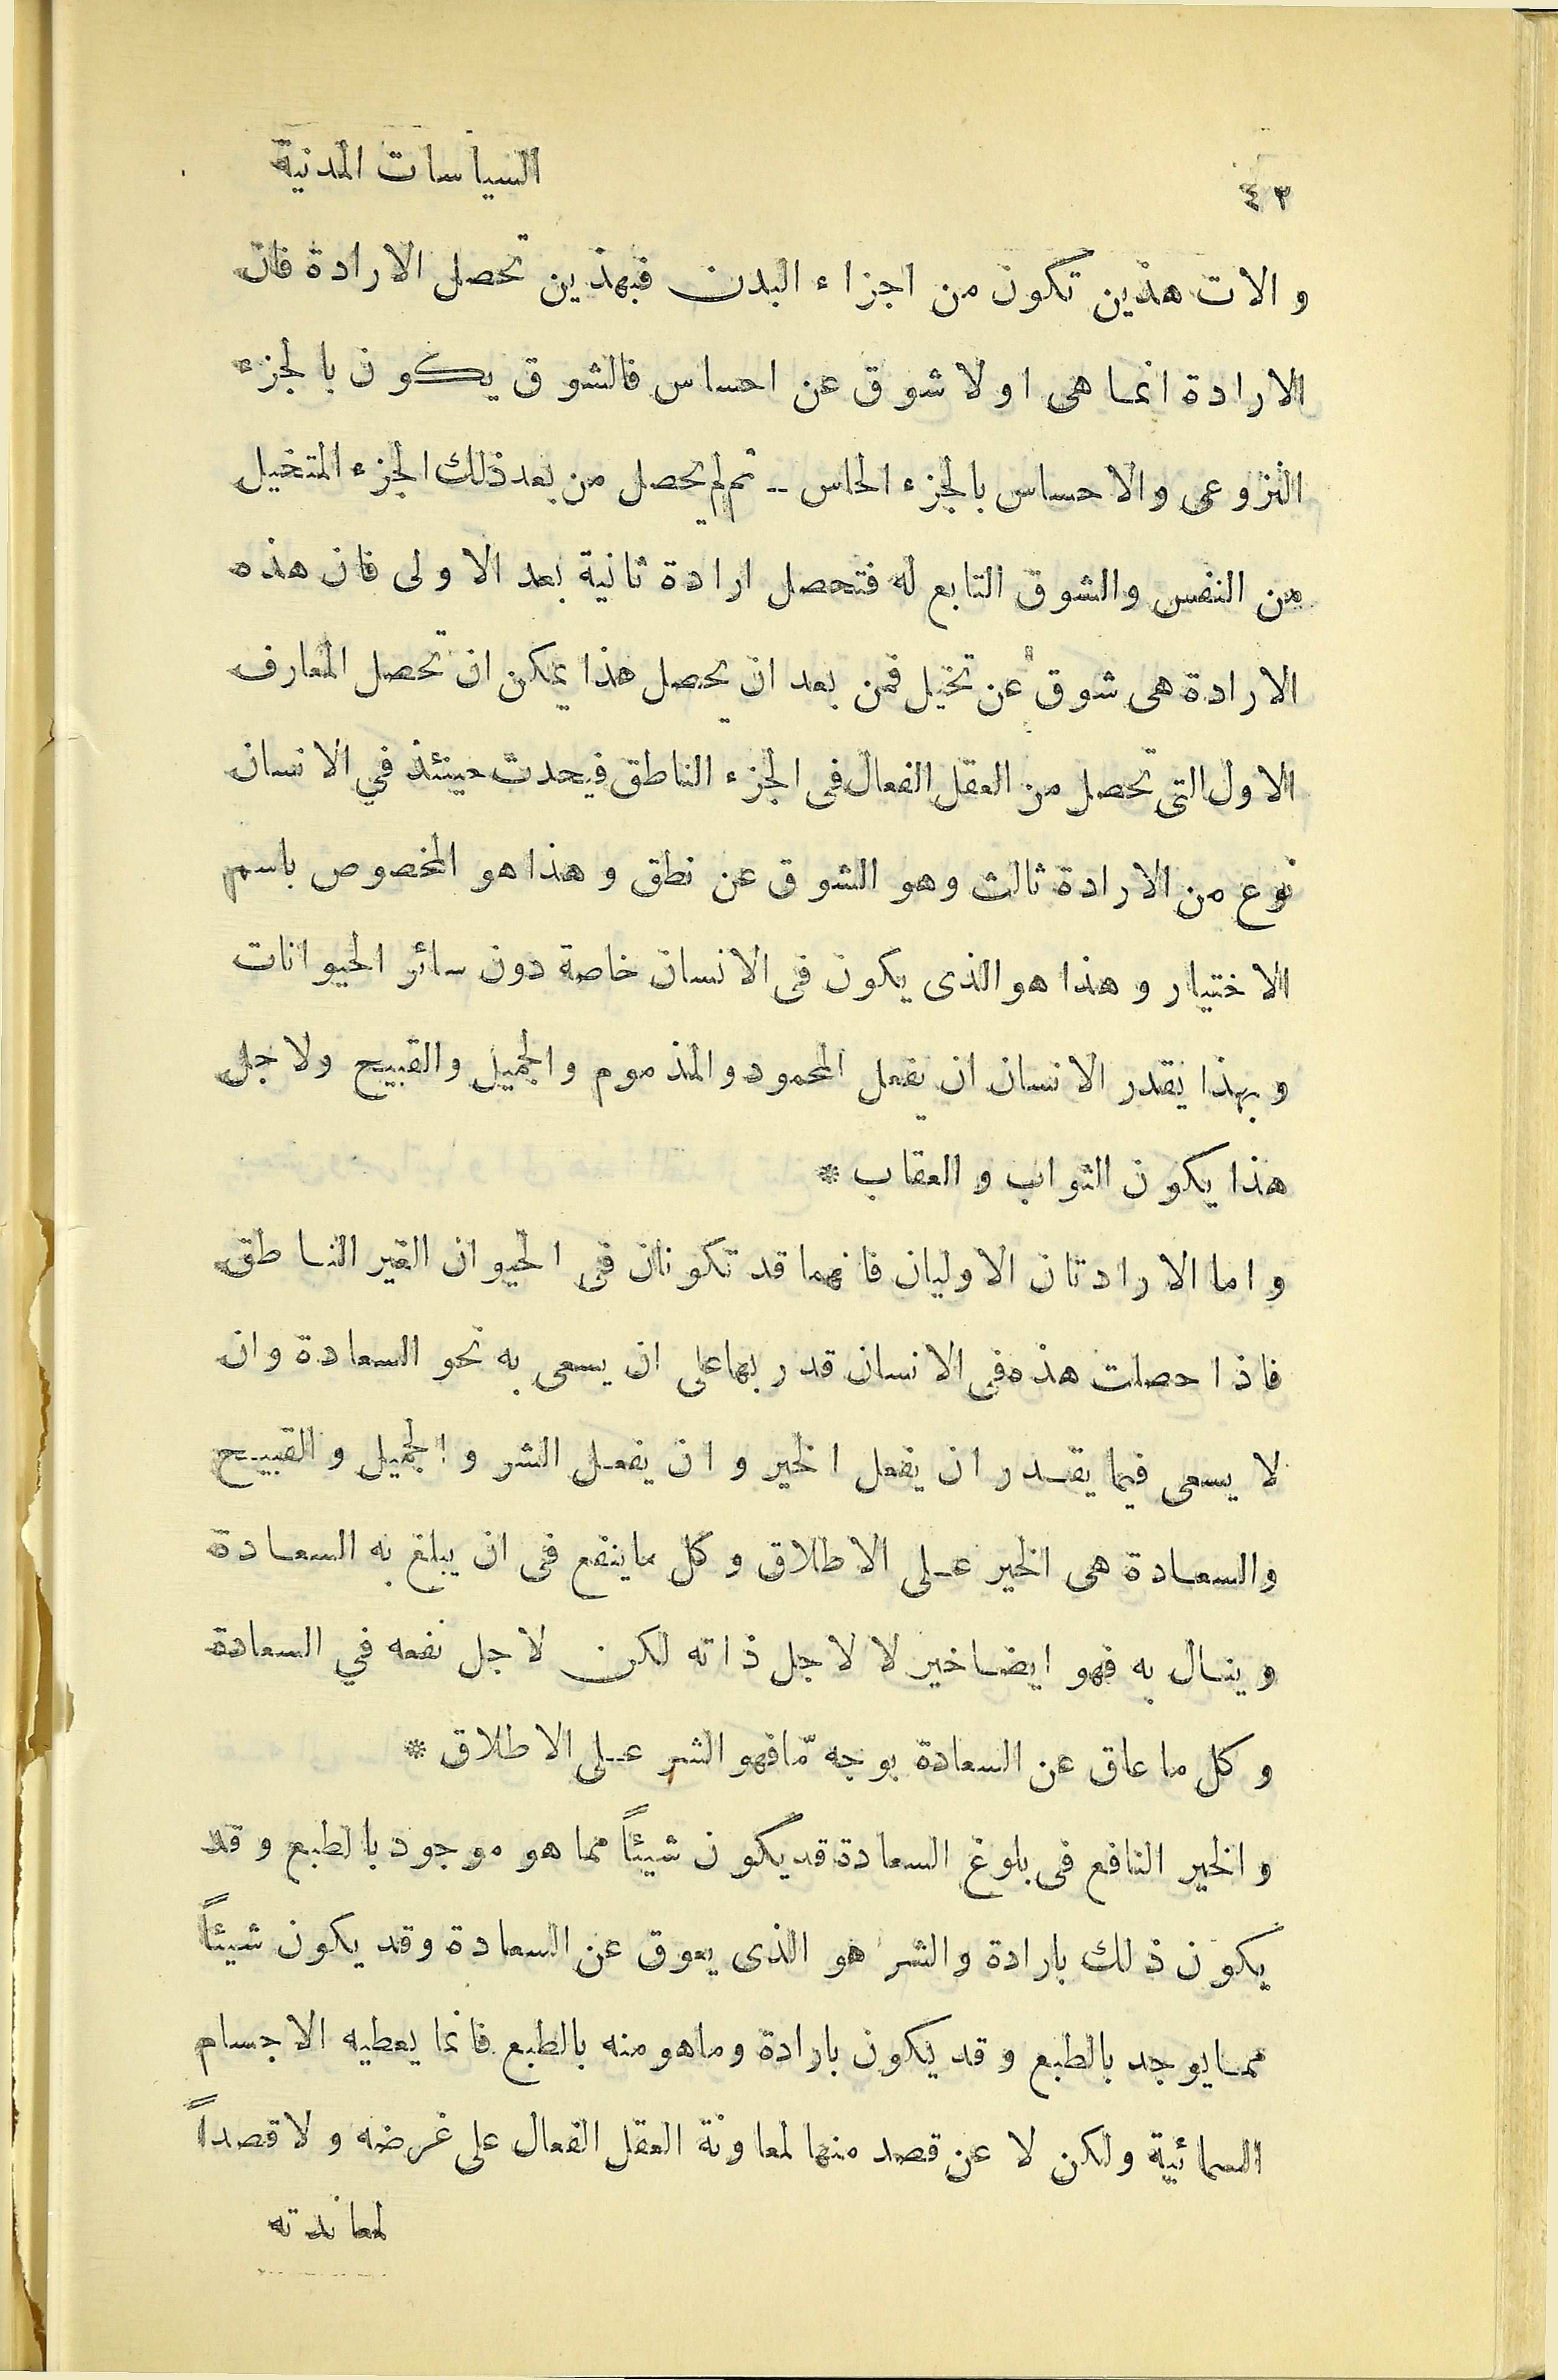 السياسات المدنية
٤٢
والات هذين تكون من اجزاء البدن فبهذين تحصل الارادة فان
الارادة انما هى اولا شوق عن احساس فالشوق يكون بالجزء
النزوعى والاحساس بالجزء الحاس -- ثم لم يحصل من بعد ذلك الجزء المتخيل
من النفس والشوق التابع له فتحصل ارادة ثانية بعد الاولى فان هذه
الارادة هى شوق عن تخيل فمن بعد ان يحصل هذا يمكن ان تحصل المعارف
الاول التى تحصل من العقل الفعال فى الجزء الناطق فيحدث حينئذ في الانسان
نوع من الارادة ثالث وهو الشوق عن نطق وهذا هو المخصوص باسم
الاختيار وهذا هو الذى يكون فى الانسان خاصة دون سائر الحيوانات
وبهذا يقدر الانسان ان يفعل المحمود والمذموم والجميل والقبيح ولاجل
هذا يكون الثواب والعقاب *
واما الارادتان الاوليان فانهما قد تكونان فى الحيوان الغير الناطق
فاذا حصلت هذه فى الانسان قدر بها على ان يسعى به نحو السعادة وان
لا يسعى فيما يقدر ان يفعل الخير وان يفعل الشر والجميل والقبيح
والسعادة هى الخير على الاطلاق وكل ما ينفع فى ان يبلغ به السعادة
وينال به فهو ايضا خير لا لاجل ذاته لكن لاجل نفعه في السعادة
وكل ما عاق عن السعادة بوجه مّا فهو الشر على الاطلاق *
والخير النافع فى بلوغ السعادة قد يكون شيئاً مما هو موجود بالطبع وقد
يكون ذلك بارادة والشر هو الذى يعوق عن السعادة وقد يكون شيئاً
مما يوجد بالطبع وقد يكون بارادة وما هو منه بالطبع فانما يعطيه الاجسام
السمائية ولكن لا عن قصد منها لمعاونة العقل الفعال على غرضه ولا قصداً
لمعاندته